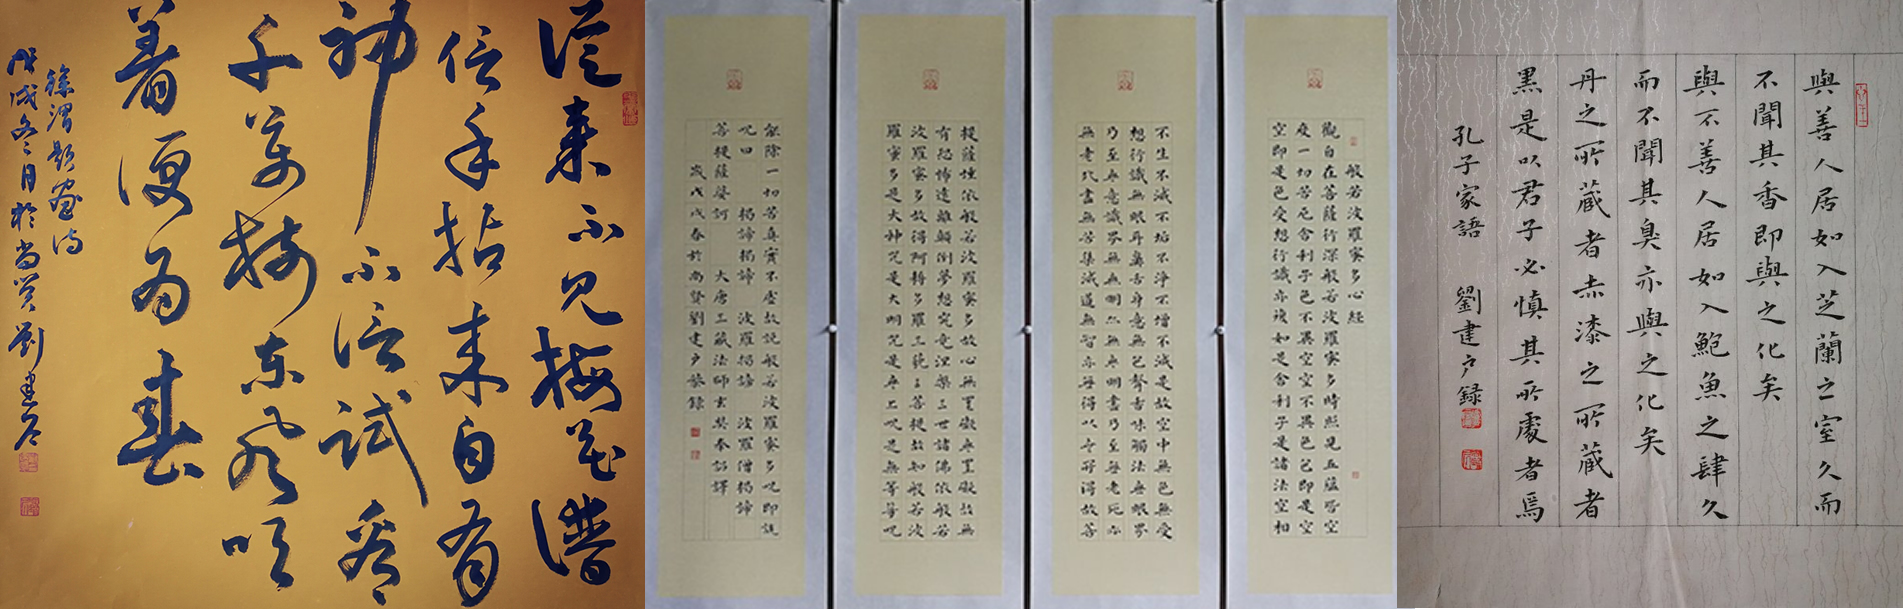 從来不見梅花譜
信手拈来自有
神不信試看
千萬樹東風吹
着便為春
徐渭題畫詩
戊戌冬月於尚賢劉建戶
般若波羅蜜多心経
觀自在菩薩行深般若波羅蜜多時照見五蘊皆空
度一切苦厄舍利子色不異空空不異色色即是空
空即是色受想行識亦復如是舍利子是諸法空相
不生不滅不垢不淨不增不減是故空中無色無受
想行識無眼耳鼻舌身意無色聲香味觸法無眼界
乃至無意識界無無明亦無無明盡乃至無老死亦
無老死盡無苦集滅道無智亦無得以無所得故菩
提薩埵依般若波羅蜜多故心無罣礙無罣礙故無
有恐怖遠離顛倒夢想究竟涅槃三世諸佛依般若
波羅蜜多故得阿耨多羅三藐三菩提故知般若波
羅蜜多是大神咒是大明咒是無上咒是無等等咒
能除一切苦真實不虛故說般若波羅蜜多咒即說
咒曰 揭諦揭諦 波羅揭諦 波羅僧揭諦
菩提薩婆訶 大唐三藏法師玄奘奉詔譯
歲戊戌春於尚賢劉建戶恭録
與善人居如入芝蘭之室久而
不聞其香即與之化矣
與不善人居如入鮑魚之肆久
而不聞其臭亦與之化矣
丹之所蔵者赤漆之所蔵者
黑是以君子必慎其所處者焉
孔子家語 劉建戶録